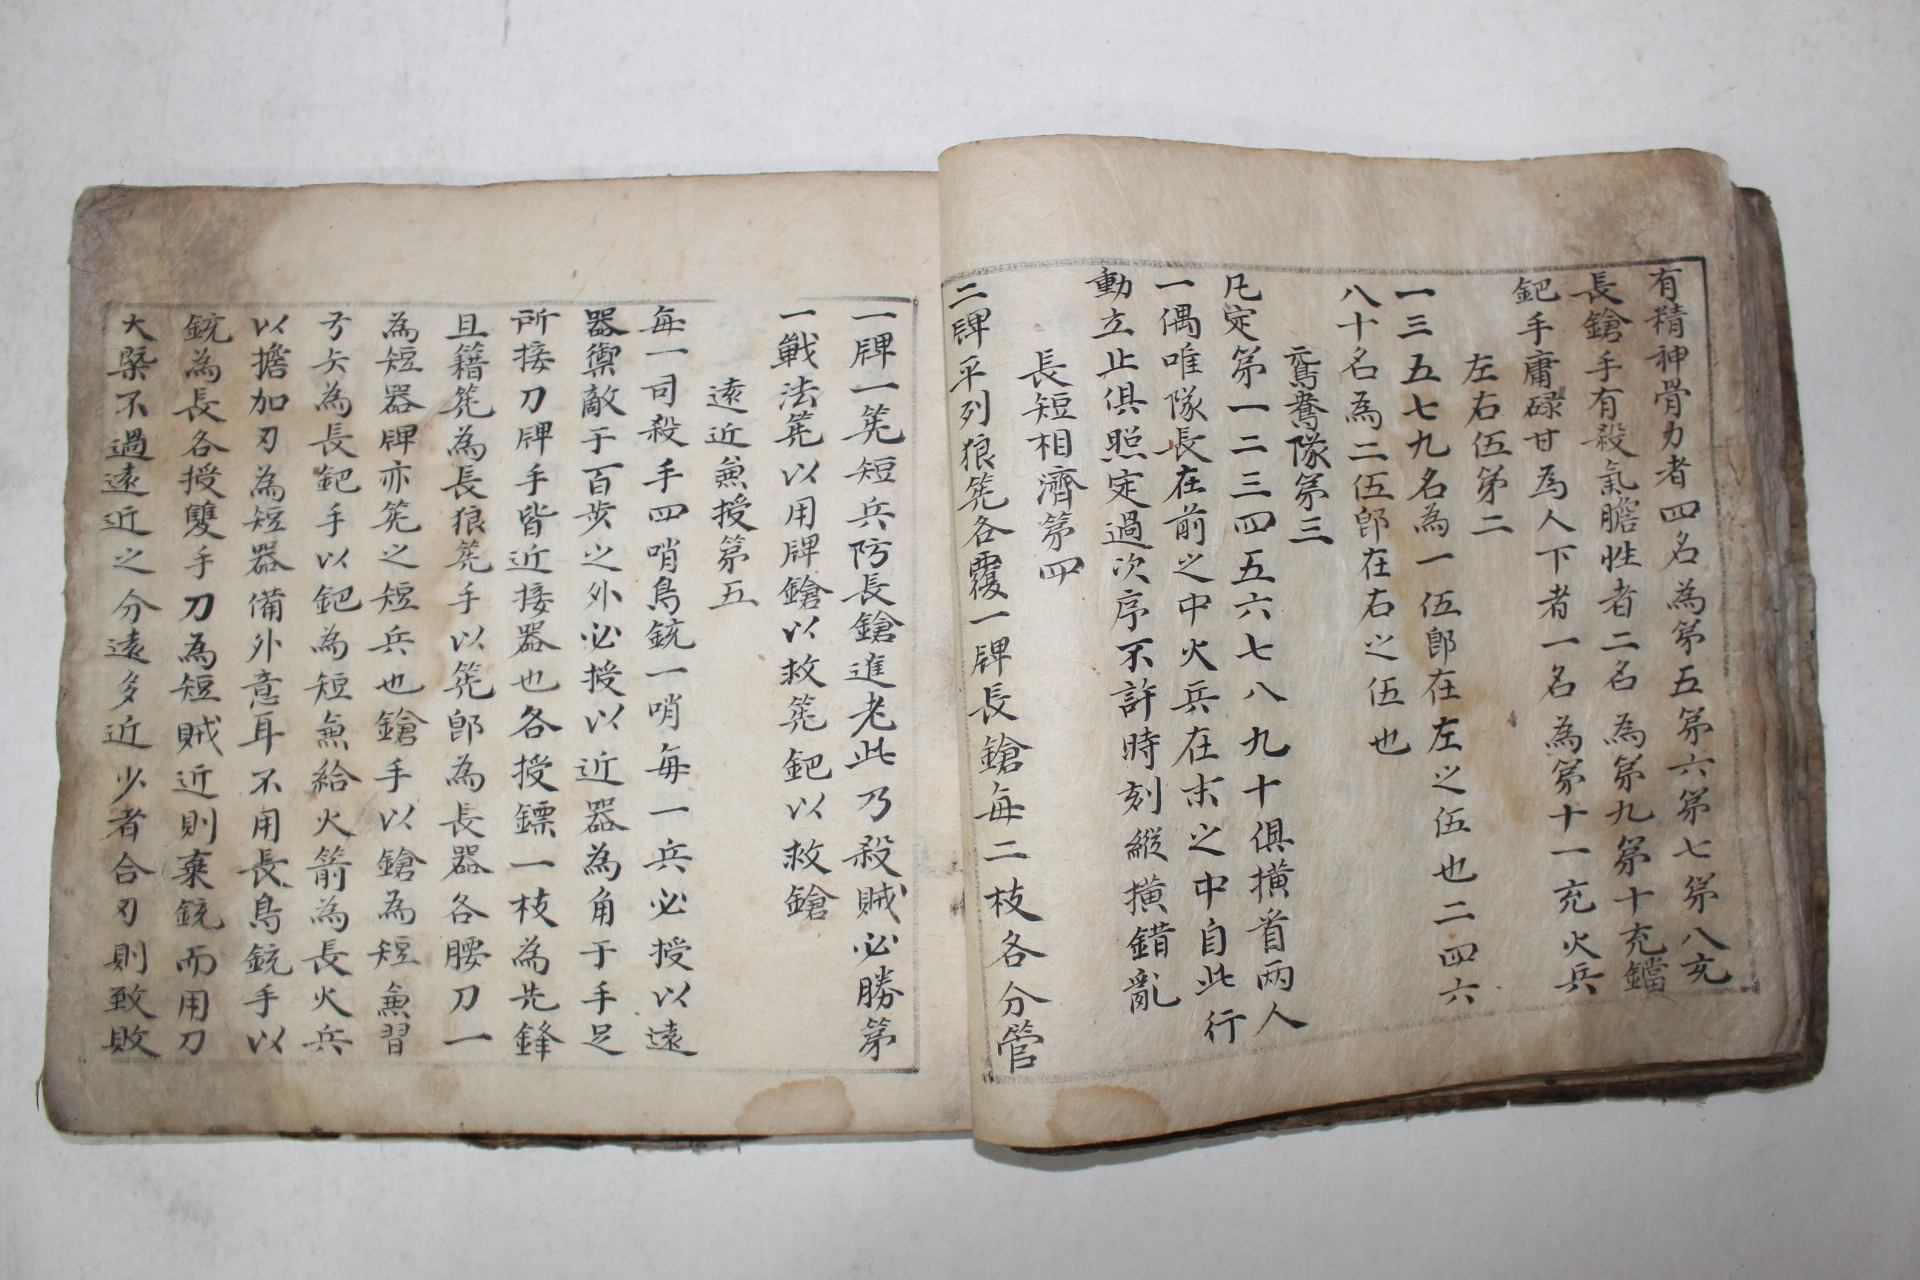 有精神骨力者四名為第五第六第七第八充
長鎗手有殺氣膽性者二名為第九第十充鐺
鈀手庸碌甘為人下者一名為第十一充火兵
左右伍第二
一三五七九名為一伍郎在左之伍也二四六
八十名為二伍郎在右之伍也
鴛鴦隊第三
凡定第一二三四五六七八九十俱橫首兩人
一偶唯隊長在前之中火兵在末之中自此行
動立止俱照定過次序不許時刻縱橫錯亂
長短相濟第四
二牌平列狼筅各覆一牌長鎗每二枝各分管
一牌一筅短兵防長鎗進老此乃殺賊必勝第
一戰法筅以用牌鎗以救筅鈀以救鎗
遠近兼授第五
每一司殺手四哨鳥銃一哨每一兵必授以遠
器禦敵于百步之外必授以近器為角于手足
所接刀牌手皆近接器也各授鏢一枝為先鋒
且籍筅為長狼筅手以筅郎為長器各腰刀一
為短器牌亦筅之短兵也鎗手以鎗為短兼習
弓矢為長鈀手以鈀為短兼給火箭為長火兵
以擔加刃為短器備外意耳不用長鳥銃手以
銃為長各授雙手刀為短賊近則棄銃而用刀
大槩不過遠近之分遠多近少者合刃則致敗